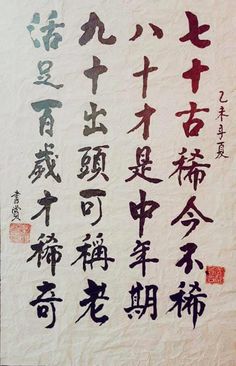 乙未年夏
七十古稀今不稀
八十才是中年期
九十出頭可稱老
活足百歲才稀奇
書賢